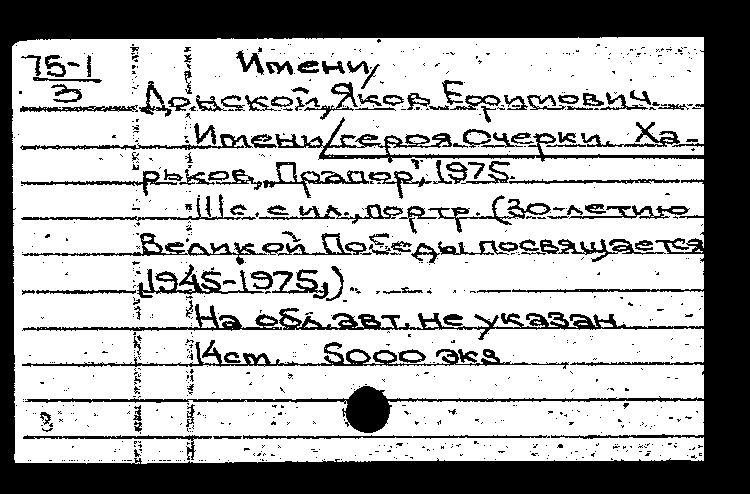 75-1
3
Имени
Донской, Яков Ефимович.
Имени героя. Очерки. Ха-
рьков, „Прапор", 1975.
111 с. с ил., портр. (30-летию
Великой Победы посвящается
„1945-1975„).
На обл. авт. не указан.
14 cm. 5000 экз